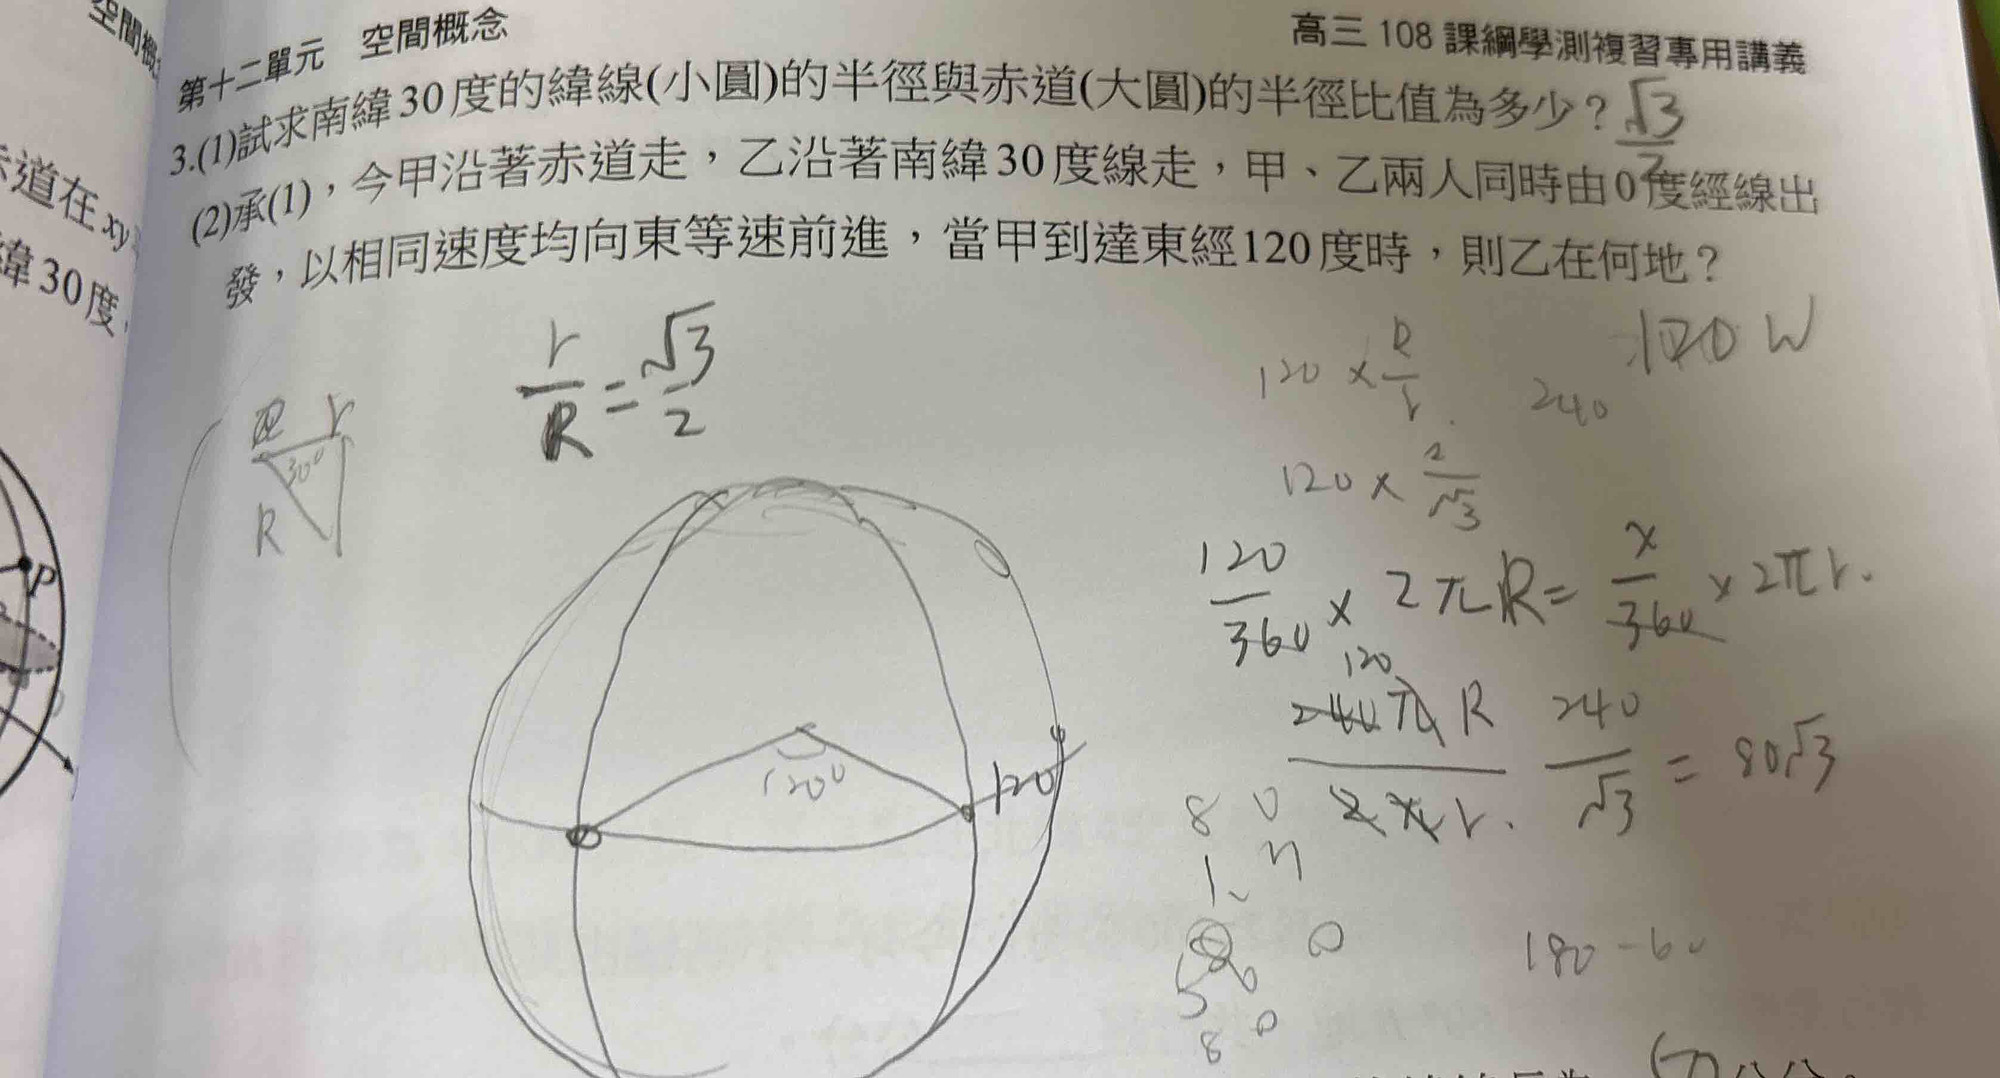 空間概
第十二單元 空間概念
高三 108 課綱學測複習專用講義
3.(1)試求南緯30度的緯線(小圓)的半徑與赤道(大圓)的半徑比值為多少? √3/2
(2)承(1),今甲沿著赤道走,乙沿著南緯30度線走,甲、乙兩人同時由0度經線出
發,以相同速度均向東等速前進,當甲到達東經120度時,則乙在何地?
道在xy
緯30度,
P
r/R = √3/2
r
30°
R
120 × R/r
240
120 W
120 × 2/√3
120/360 × 2πR = x/360 × 2πr.
120
240πR / 2πr.
240/√3 = 80√3
120°
120
8 0
1.
180-60
8 0